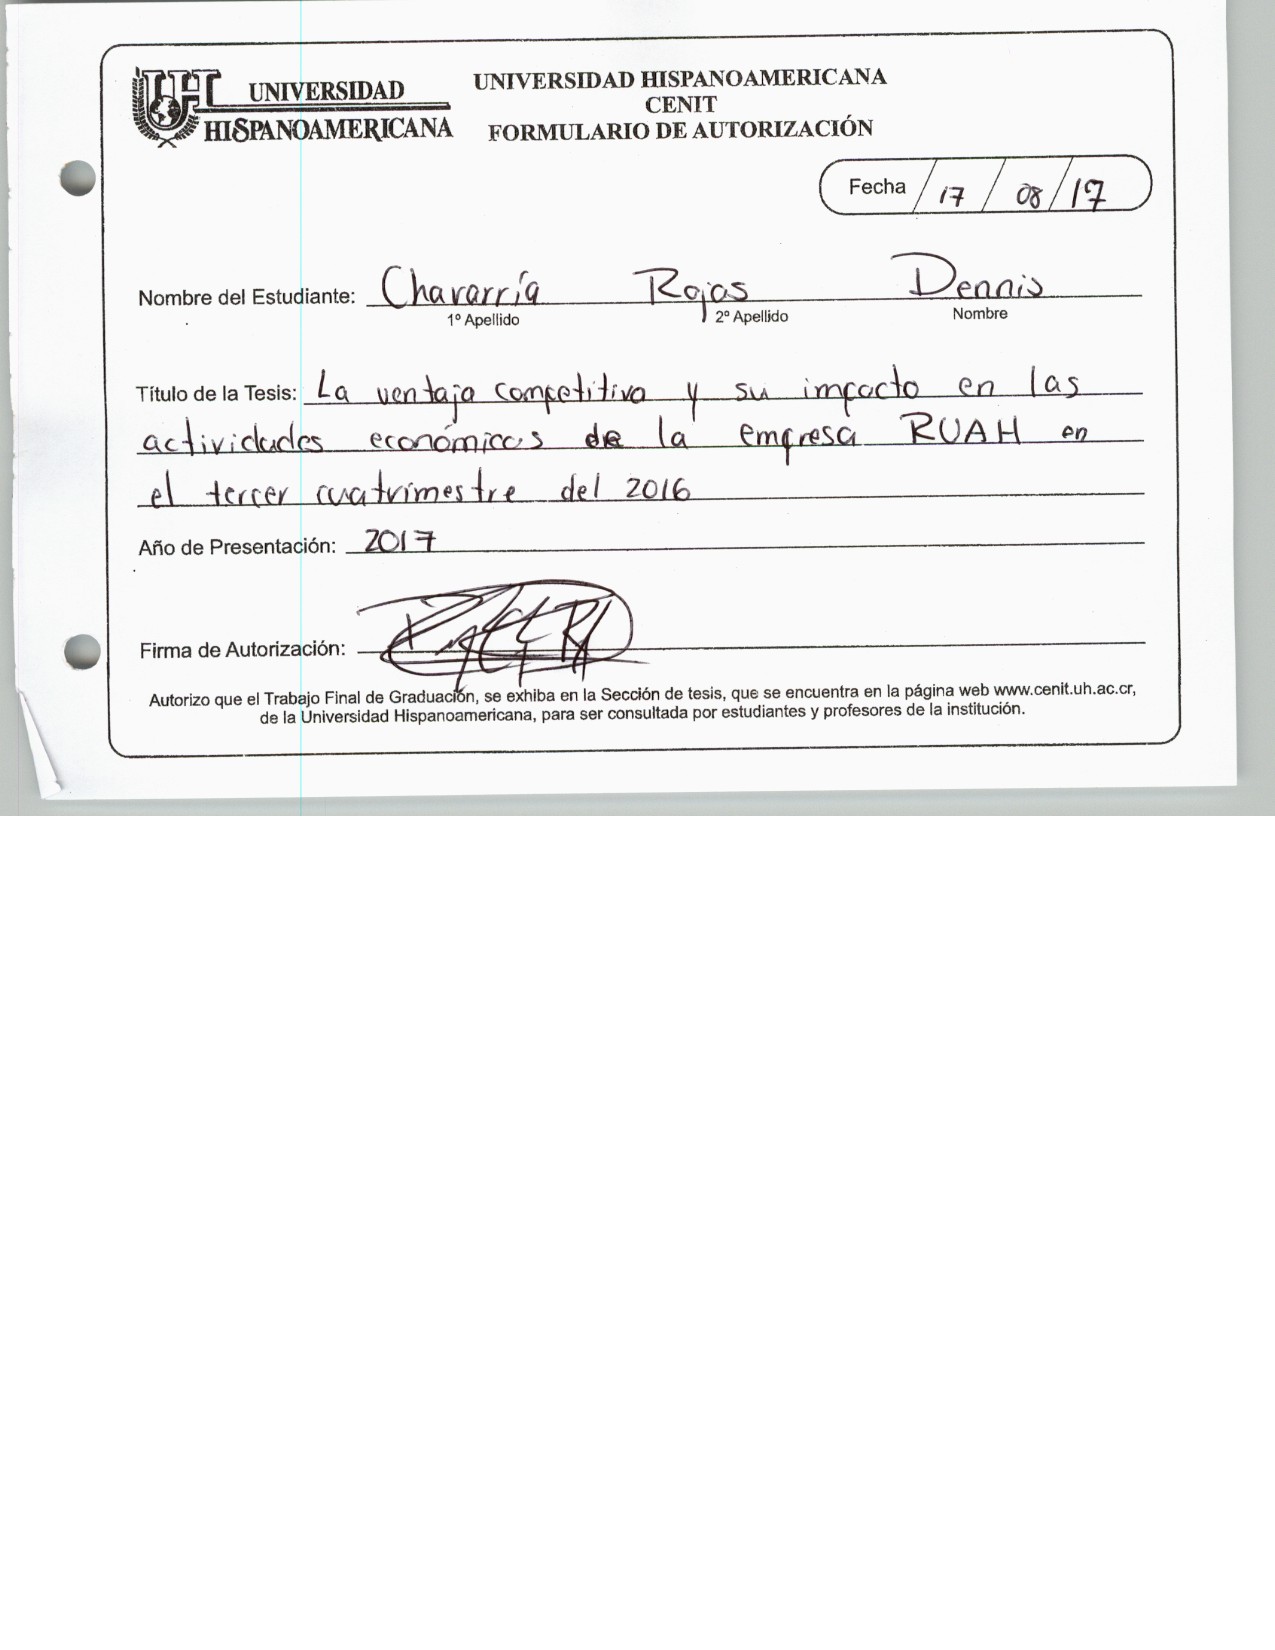 UNIVERSIDAD
HISPANOAMERICANA
UNIVERSIDAD HISPANOAMERICANA
CENIT
FORMULARIO DE AUTORIZACIÓN
Fecha / 17 / 08 / 17
Nombre del Estudiante: Chavarría Rojas Dennis
1º Apellido 2º Apellido Nombre
Título de la Tesis: La ventaja competitiva y su impacto en las
actividades económicas de la empresa RUAH en
el tercer cuatrimestre del 2016
Año de Presentación: 2017
Firma de Autorización:
Autorizo que el Trabajo Final de Graduación, se exhiba en la Sección de tesis, que se encuentra en la página web www.cenit.uh.ac.cr,
de la Universidad Hispanoamericana, para ser consultada por estudiantes y profesores de la institución.